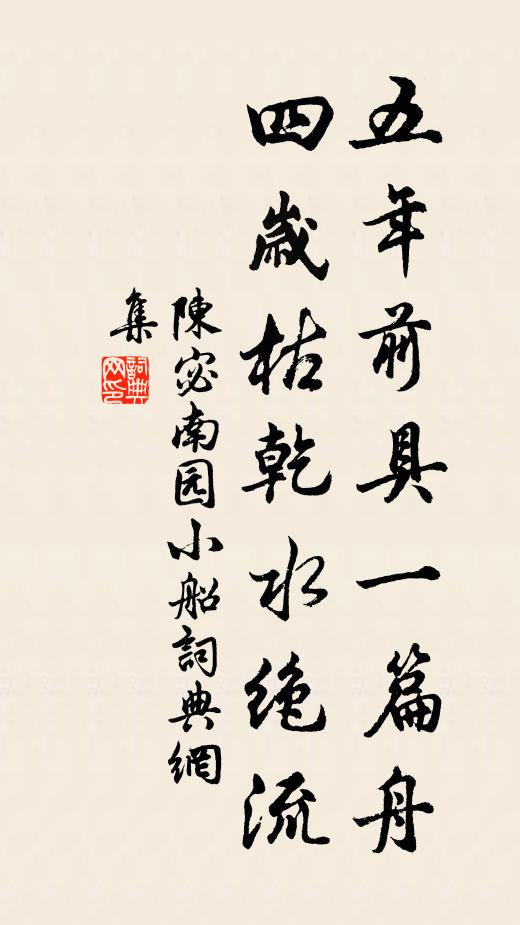 五年前具一篇舟
四歲枯乾水絶流
陳宓南园小船詞典網
集
詞典网印